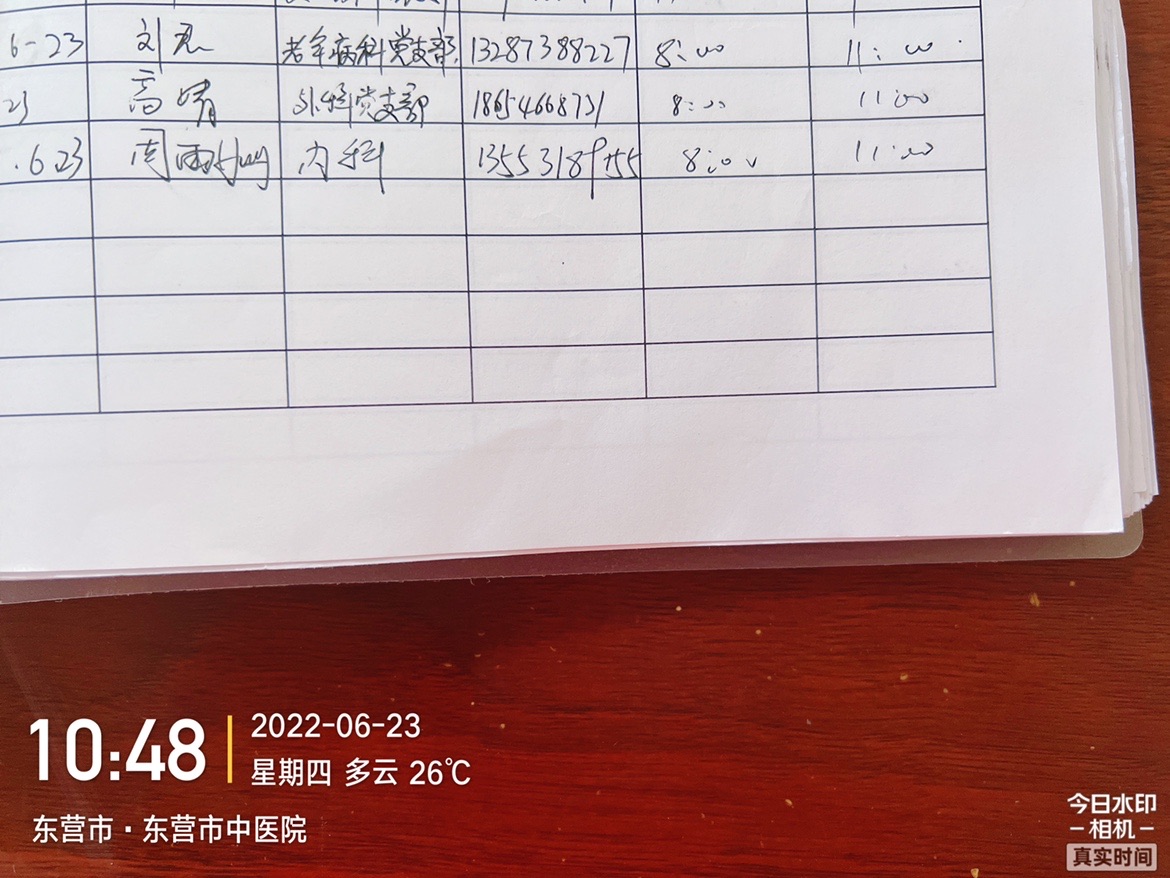 6-23 刘君 老年病科党支部 13287388227 8:00 11:00
23 高婧 外科党支部 18654668731 8:00 11:00
.623 周雨 内科 8:00 11:00
10:48
2022-06-23
星期四 多云 26℃
东营市·东营市中医院
今日水印
-相机-
真实时间